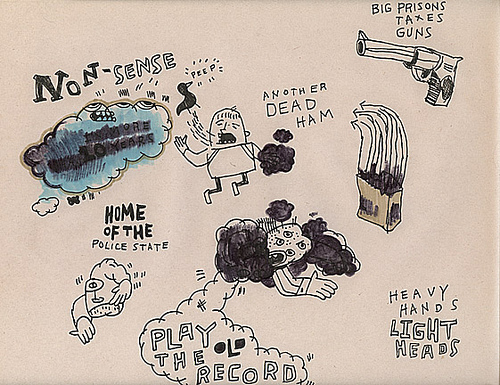 BIG PRISONS
TAXES
GUNS
NON-SENSE
PEEP
ANOTHER
DEAD
HAM
HOME
OF THE
POLICE STATE
PLAY
THE OLD
RECORD
HEAVY
HANDS
LIGHT
HEADS